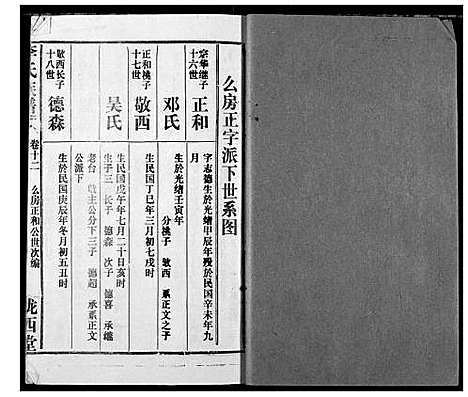 幺房正字派下世系图
十六世
宗华继子
正和
字志德生於光绪甲辰年殁於民国辛未年九
月
邓氏
生於光绪壬寅年
分桃子 敬西 系正文之子
十七世
正和桃子
敬西
生民国丁巳年三月初七戌时
吴氏
生民国戊午年七月二十日亥时
生子三 长子 德森 次子 德喜 承继
老台 敬主公分下三子 德超 承系正文
公派下
十八世
敬西长子
德森
生於民国庚辰年冬月初五丑时
李氏族谱 卷十二 幺房正和公世次编 陇西堂